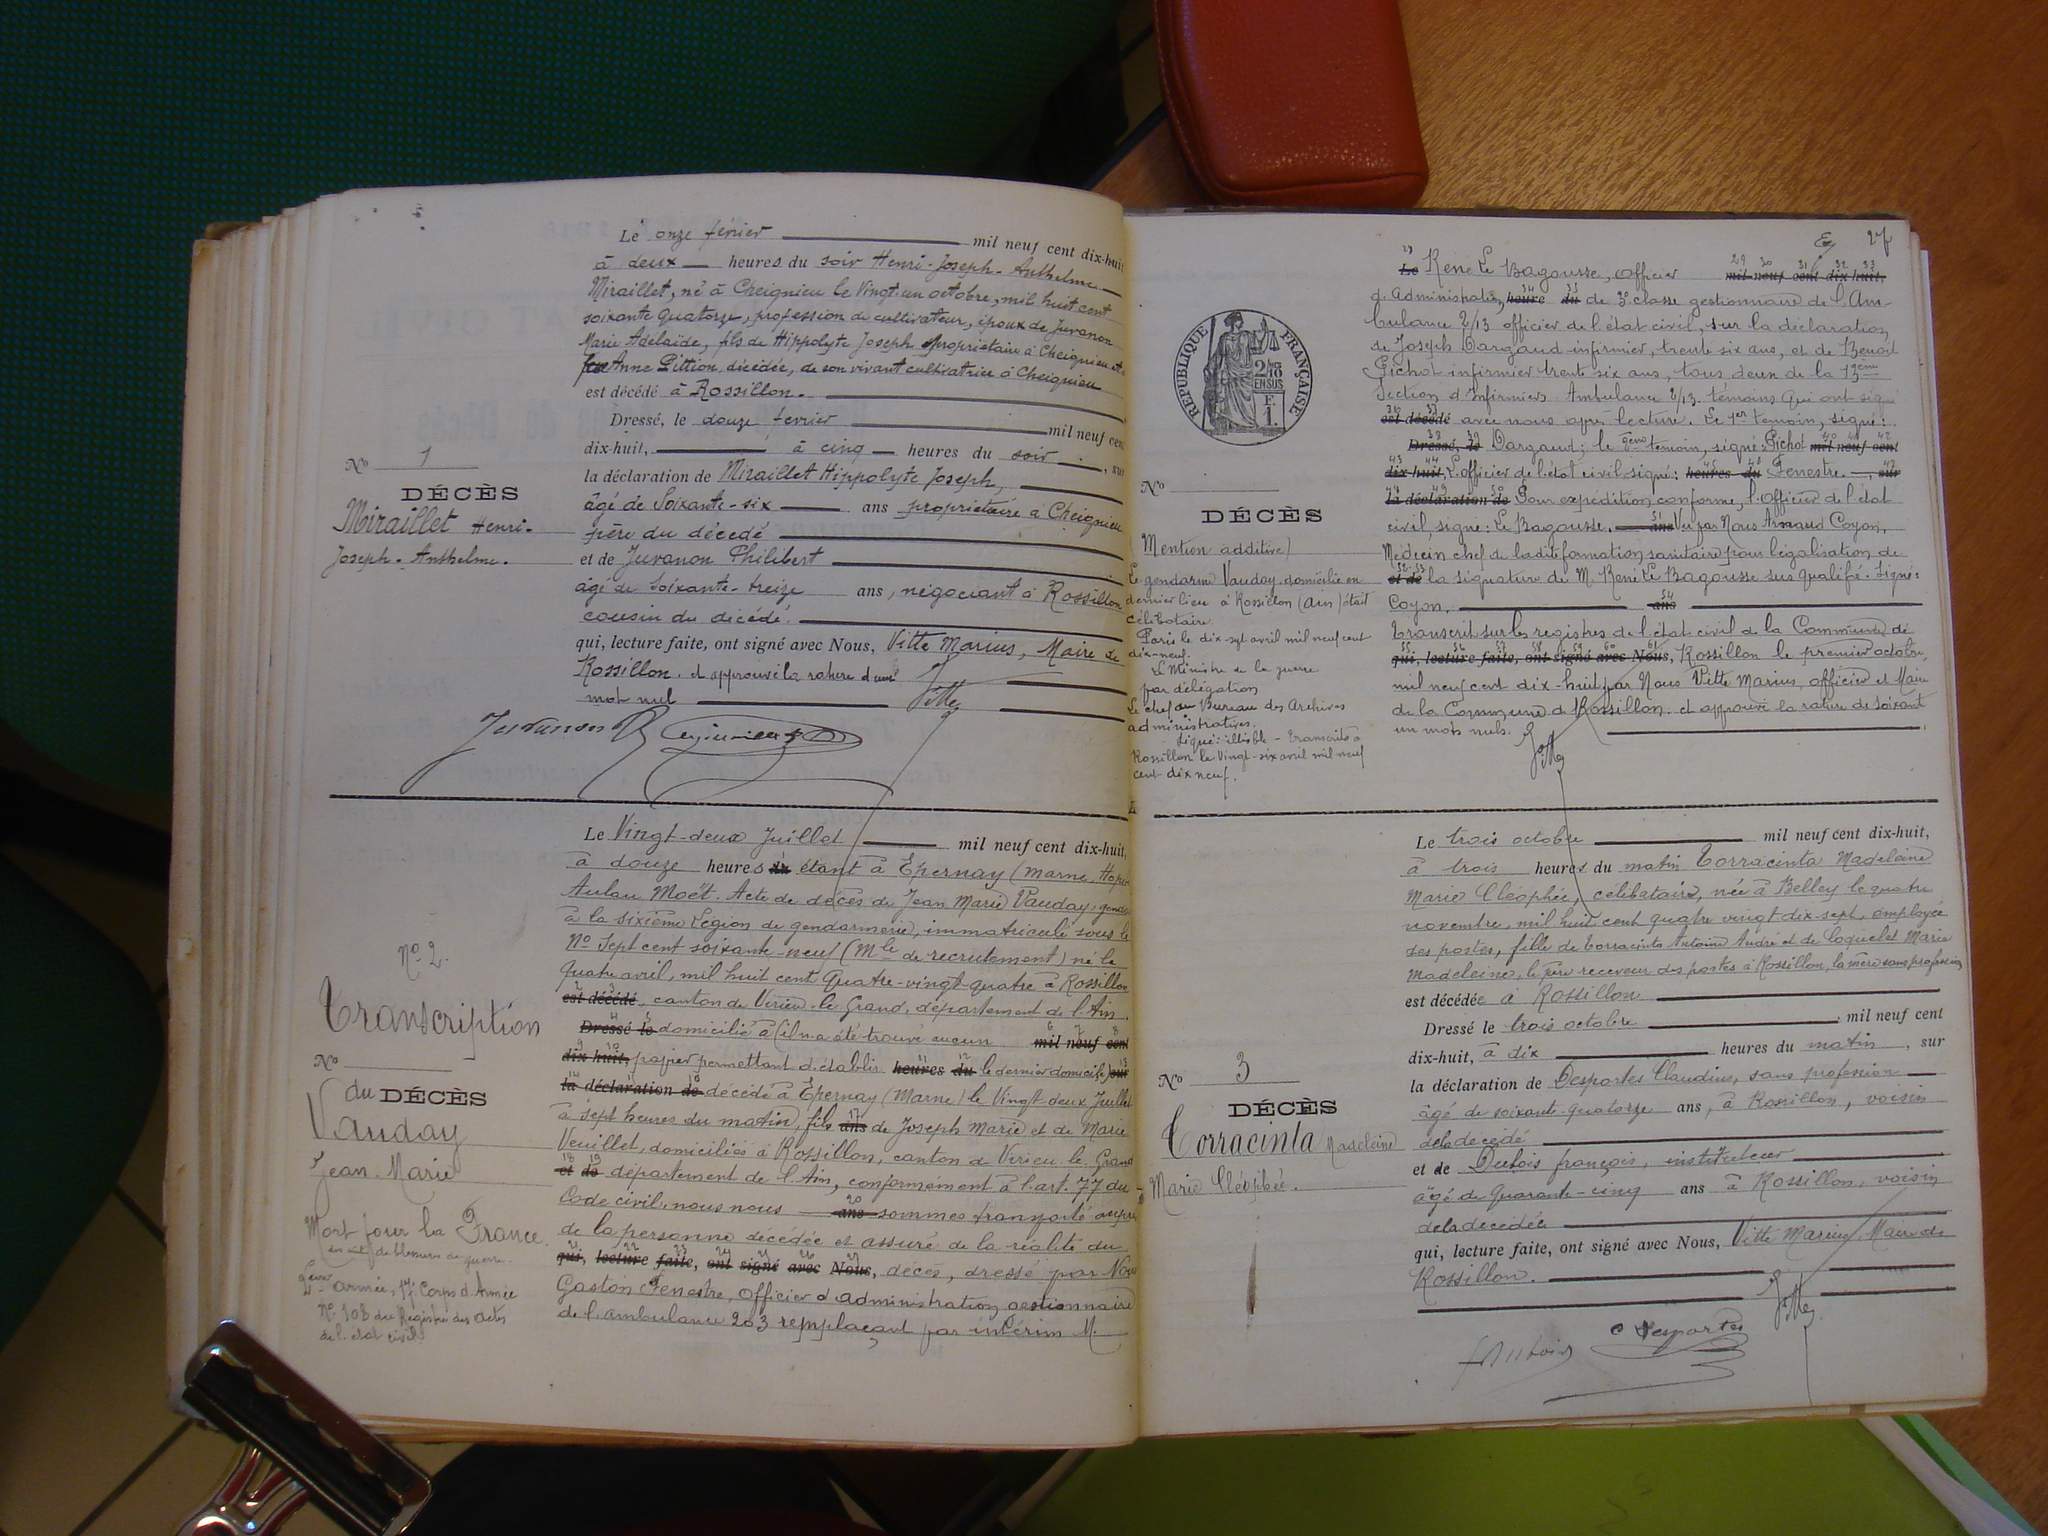 Le onze février mil neuf cent dix-huit
à deux heures du soir Henri-Joseph-Anthelme
Miraillet, né à Cheignieu le Vingt-un octobre, mil huit cent
soixante quatorze, profession de cultivateur, époux de Juvanon
Marie Adélaïde, fils de Hippolyte Joseph propriétaire à Cheignieu et
Anne Pittion, décédée, de son vivant cultivatrice à Cheignieu
est décédé à Rossillon.
Dressé, le douze fevrier mil neuf cent
dix-huit, à cinq heures du soir, sur
la déclaration de Miraillet Hippolyte Joseph,
âgé de Soixante-six ans propriétaire à Cheignieu
père du décédé
et de Juvanon Philibert
âgé de Soixante-treize ans, négociant à Rossillon
cousin du décédé.
qui, lecture faite, ont signé avec Nous, Vitte Marius, Maire de
Rossillon. et approuvé la rature d'un
mot nul Vitte
Juvanon
No 1
DÉCÈS
Miraillet Henri-
Joseph-Anthelme.
Le Vingt-deux Juillet mil neuf cent dix-huit,
à douze heures du étant à Épernay (Marne, Hopi
Auban Moët. Acte de décès de Jean Marie Vauday, gend
à la sixième Légion de gendarmerie, immatriculé sous le
No Sept cent soixante-neuf (Mle de recrutement) né le
quatre avril, mil huit cent quatre-vingt-quatre à Rossillon
2 3
est décédé, canton de Virieu-le-Grand, département de l'Ain.
4 5 6 7 8
Dressé le domicilié à (il n'a été trouvé aucun mil neuf cent
9 10 11 12 13
dix-huit, papier permettant d'établir heures du le dernier domicile) sur
14 15 16
la déclaration de décédé à Épernay (Marne) le Vingt-deux Juillet
17
à sept heures du matin, fils ans de Joseph Marie et de Marie
Veuillet, domiciliés à Rossillon, canton de Virieu le Grand
18 19
et de département de l'Ain, conformément à l'art. 77 du
20
Code civil, nous nous ans sommes transporté auprès
de la personne décédée et assuré de la réalité du
21 22 23 24 25 26 27
qui, lecture faite, ont signé avec Nous, décès, dressé par Nous
Gaston Fenestre, Officier d'administration gestionnaire
de l'ambulance 203 remplaçant par intérim M.
No 2.
Transcription
No
du DÉCÈS
Vauday
Jean-Marie
Mort pour la France.
5ème armée, 17e Corps d'Armée
No 108 du Registre des actes
de l'état civil.
27
28 29 30 31 32 33
Le René Le Bagousse, officier mil neuf cent dix-huit,
34 35
d'Administration heure du de 3e classe gestionnaire de l'Am-
bulance 2/13 officier de l'état civil, sur la déclaration,
de Joseph Dargaud infirmier, trente six ans, et de Benoit
Pichot infirmier trente six ans, tous deux de la 13ème
Section d'Infirmiers Ambulance 2/13. témoins qui ont sig
36 37
est décédé avec nous après lecture. Le 1er témoin, signé:
38 39 40 41 42
Dressé, le Dargaud; le 2ème témoin, signé Pichot mil neuf cent
43 44 45 46 47
dix-huit, L'officier de l'état civil signé: heures du Fenestre. sur
48 49 50
la déclaration de Pour expédition conforme, l'Officier de l'état
51
civil, signé: Le Bagousse. ans Vu par Nous Arnaud Coyon,
Médecin chef de ladite formation sanitaire pour légalisation de
52 53
et de la signature de M. René Le Bagousse sus qualifié. Signé:
54
Coyon. ans
Transcrit sur les registres de l'état civil de la Commune de
55 56 57 58 59 60 61
qui, lecture faite, ont signé avec Nous, Rossillon le premier octobre,
mil neuf cent dix-huit par Nous Vitte Marius, officier et Maire
de la Commune de Rossillon. et approuve la rature de soixant
un mots nuls. Vitte
RÉPUBLIQUE FRANÇAISE
2/10 EN SUS
F. 1.
No
DÉCÈS
Mention additive)
Le gendarme Vauday domicilié en
dernier lieu à Rossillon (Ain) était
célibataire
Paris le dix-sept avril mil neuf cent
dix-neuf.
Le Ministre de la guerre
par délégation
Le chef du Bureau des Archives
administratives.
Signé: illisible - transcrit à
Rossillon le Vingt-six avril mil neuf
cent dix neuf.
Le trois octobre mil neuf cent dix-huit,
à trois heures du matin Torracinta Madeleine
Marie Cléophée, célibataire, née à Belley le quatre
novembre, mil huit cent quatre vingt dix-sept, employée
des postes, fille de Torracinta Antoine André et de Marie
Madeleine, le père receveur des postes à Rossillon, la mère sans profession
est décédée à Rossillon
Dressé le trois octobre mil neuf cent
dix-huit, à dix heures du matin, sur
la déclaration de Desportes Claudius, sans profession
âgé de soixante-quatorze ans, à Rossillon, voisin
de la décédé
et de Dubois françois, instituteur
âgé de quarante-cinq ans à Rossillon, voisin
de la décédée
qui, lecture faite, ont signé avec Nous, Vitte Marius, Maire de
Rossillon.
Vitte
C Desportes
f Dubois
No 3
DÉCÈS
Torracinta Madeleine
Marie Cléophée.